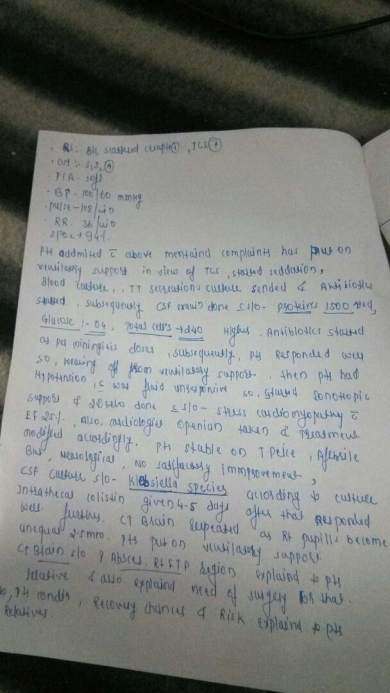 BP - 100/60 mmHg
RR - 36/min
SPO2 + 94%
Pt admitted c̄ above mentaind complaints has put on
ventilatory support in view of TLS, started seddation,
Blood culture, TT secreations culture sended & Antibiotic
started, subsequently CSF exam done s/o - proteins 1500,
Glucose :- 04, Total cells → 440 Higher Antibiotics started
as per miningitis doses, subsequently, pt Responded well
so, weaning off from ventilatory support. then pt had
Hypotention, & was fluid unresponsive so, started Ionotropic
support & 2D echo done s/o - stress cardiomyopathy c̄
EF 25%, also, cardiologist openian taken & Treatment
modified accordingly, Pt stable on T peice, Afebrile
But neurological, No satisfactory Immprovement,
CSF culture s/o - Klebsiella species according to culture
Intrathecal colistin given 4-5 days after that Responded
well further, CT Brain Repeated as Rt pupills become
unequal 2.5mm. Pts put on ventilatory support
CT Brain s/o ? Absces. Rt FTP region explained to pt
relative & also explained need of surgery for that.
so, pt condtn, Recovery chances & Risk explained to pt
Relatives